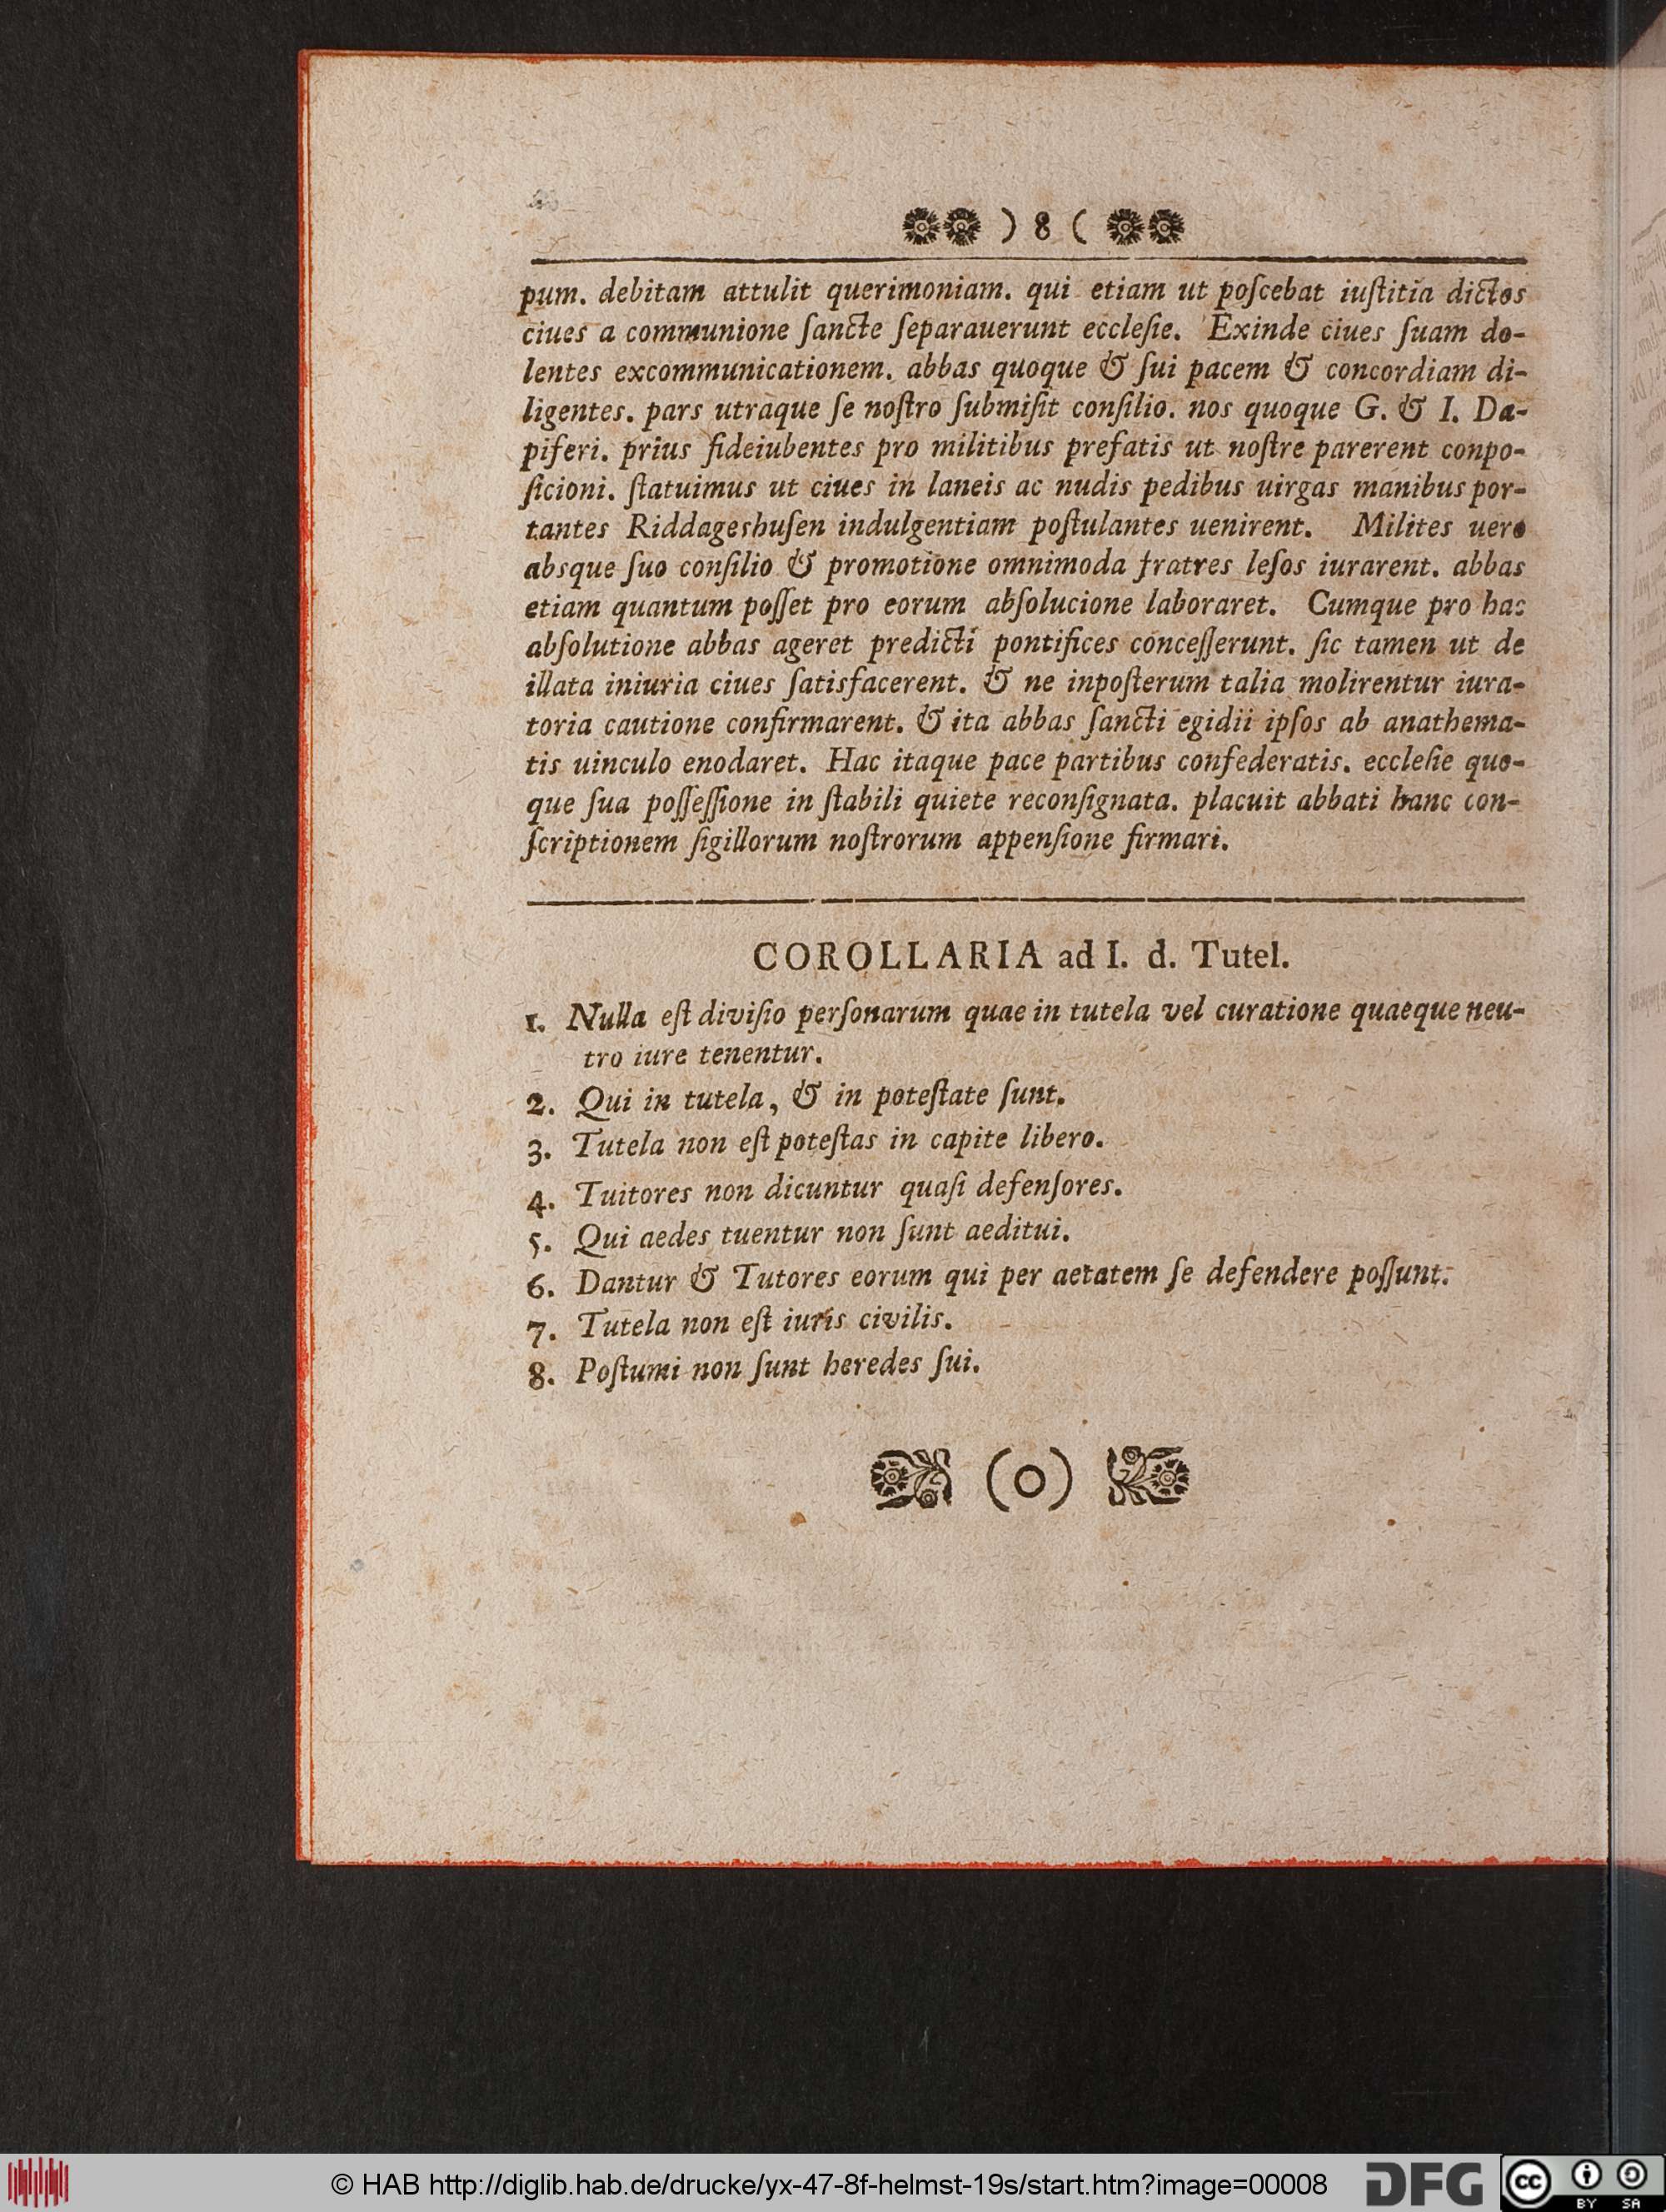 ) 8 (
pum. debitam attulit querimoniam. qui etiam ut poſcebat iuſtitia dictos
ciues a communione ſancte ſeparauerunt eccleſie. Exinde ciues ſuam do-
lentes excommunicationem. abbas quoque & ſui pacem & concordiam di-
ligentes. pars utraque ſe noſtro ſubmiſit conſilio. nos quoque G. & I. Da-
piferi. prius fideiubentes pro militibus prefatis ut noſtre parerent conpo-
ſicioni. ſtatuimus ut ciues in laneis ac nudis pedibus uirgas manibus por-
tantes Riddageshuſen indulgentiam poſtulantes uenirent. Milites uero
absque ſuo conſilio & promotione omnimoda fratres leſos iurarent. abbas
etiam quantum poſſet pro eorum abſolucione laboraret. Cumque pro hac
abſolutione abbas ageret predicti pontifices conceſſerunt. ſic tamen ut de
illata iniuria ciues ſatisfacerent. & ne inpoſterum talia molirentur iura-
toria cautione confirmarent. & ita abbas ſancti egidii ipſos ab anathema-
tis uinculo enodaret. Hac itaque pace partibus confederatis. eccleſie quo-
que ſua poſſeſſione in ſtabili quiete reconſignata. placuit abbati hanc con-
ſcriptionem ſigillorum noſtrorum appenſione firmari.
COROLLARIA ad I. d. Tutel.
1. Nulla eſt diviſio perſonarum quae in tutela vel curatione quaeque neu-
tro iure tenentur.
2. Qui in tutela, & in poteſtate ſunt.
3. Tutela non eſt poteſtas in capite libero.
4. Tuitores non dicuntur quaſi defenſores.
5. Qui aedes tuentur non ſunt aeditui.
6. Dantur & Tutores eorum qui per aetatem ſe defendere poſſunt.
7. Tutela non eſt iuris civilis.
8. Poſtumi non ſunt heredes ſui.
(o)
© HAB http://diglib.hab.de/drucke/yx-47-8f-helmst-19s/start.htm?image=00008
DFG
cc
BY SA